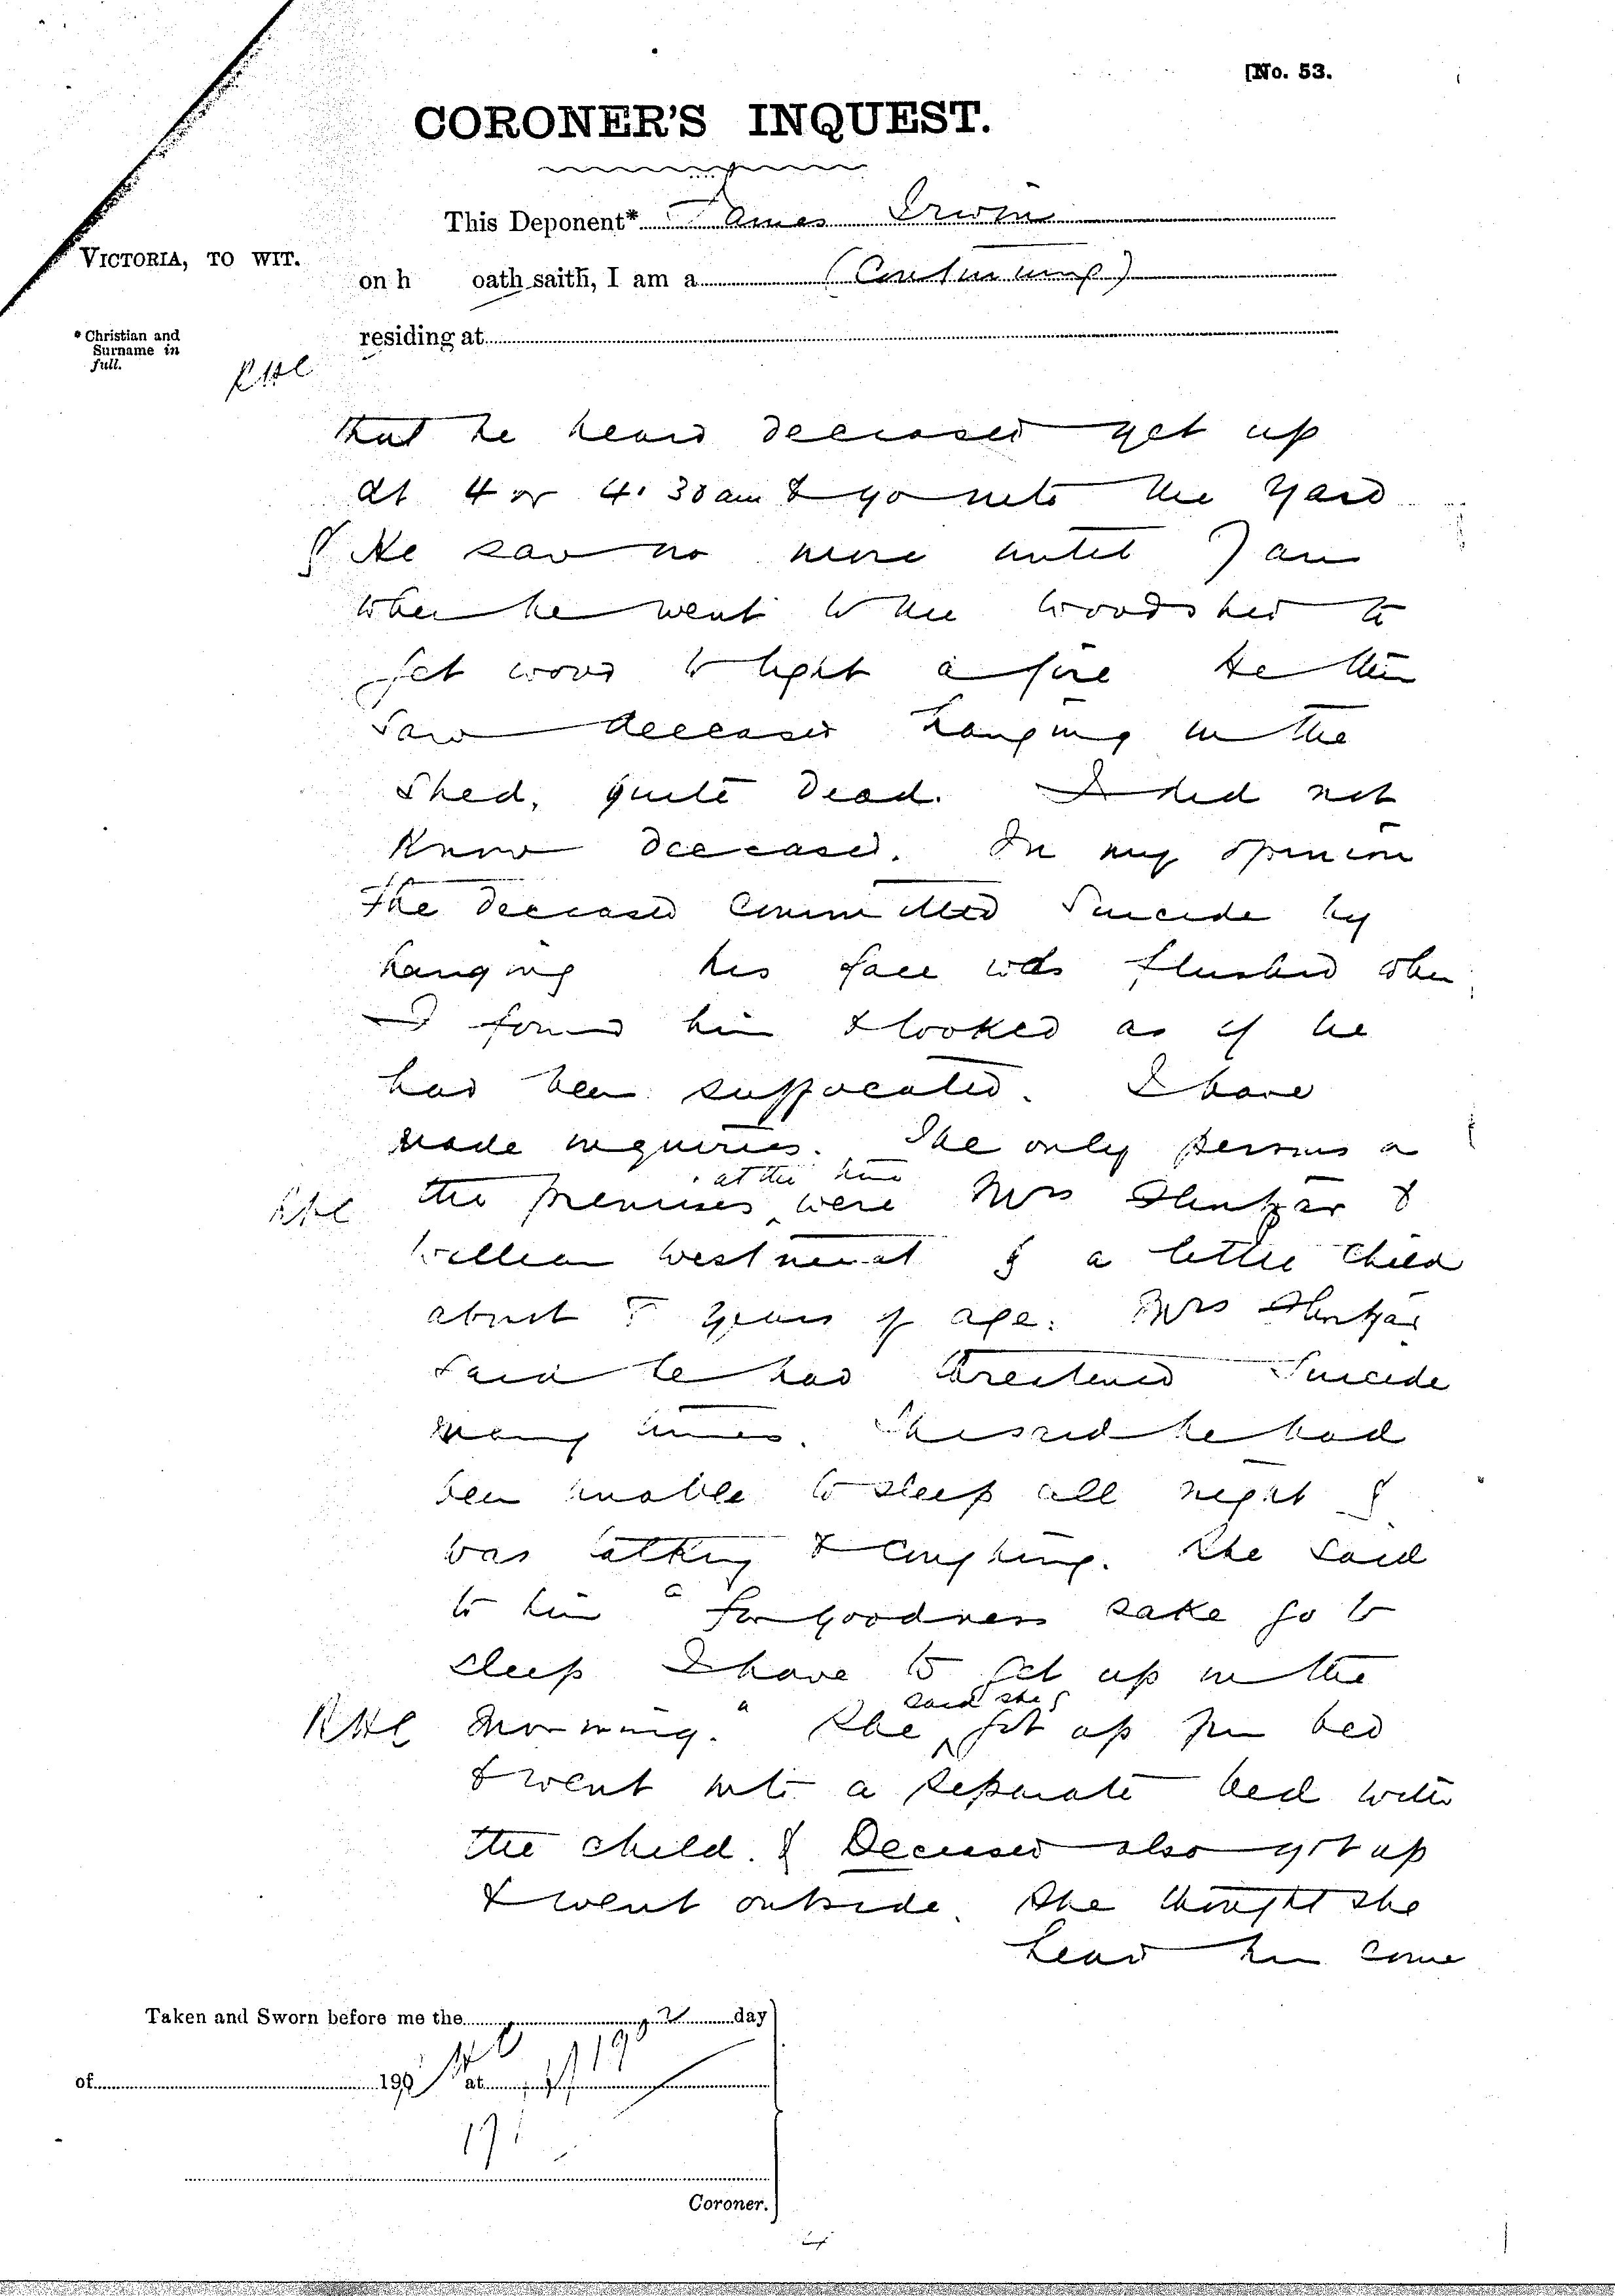 [No. 53.
CORONER'S INQUEST.
This Deponent* James Irwin
VICTORIA, TO WIT.
on h oath saith, I am a (Continuing)
* Christian and
Surname in
full.
residing at
RHC
that he heard deceased get up
at 4 or 4.30 am & go into the yard
& He saw no more until 7 am
when he went to the woodshed to
get wood to light a fire He then
saw deceased hanging in the
shed, quite dead. I did not
know deceased. In my opinion
the deceased committed suicide by
hanging his face was flushed when
I found him & looked as if he
had been suffocated. I have
made inquiries. The only persons on
at the time
RHC the premises were Mrs &
William & a little child
about 5 years of age. Mrs
said he had threatened suicide
many times. She said he had
been unable to sleep all night &
was talking & coughing. She said
to him "for goodness sake go to
sleep I have to get up in the
said she
RHC morning." She got up from bed
& went into a separate bed with
the child. & Deceased also got up
& went outside. She thought she
heard him come
Taken and Sworn before me the day
of 190 at
Coroner.